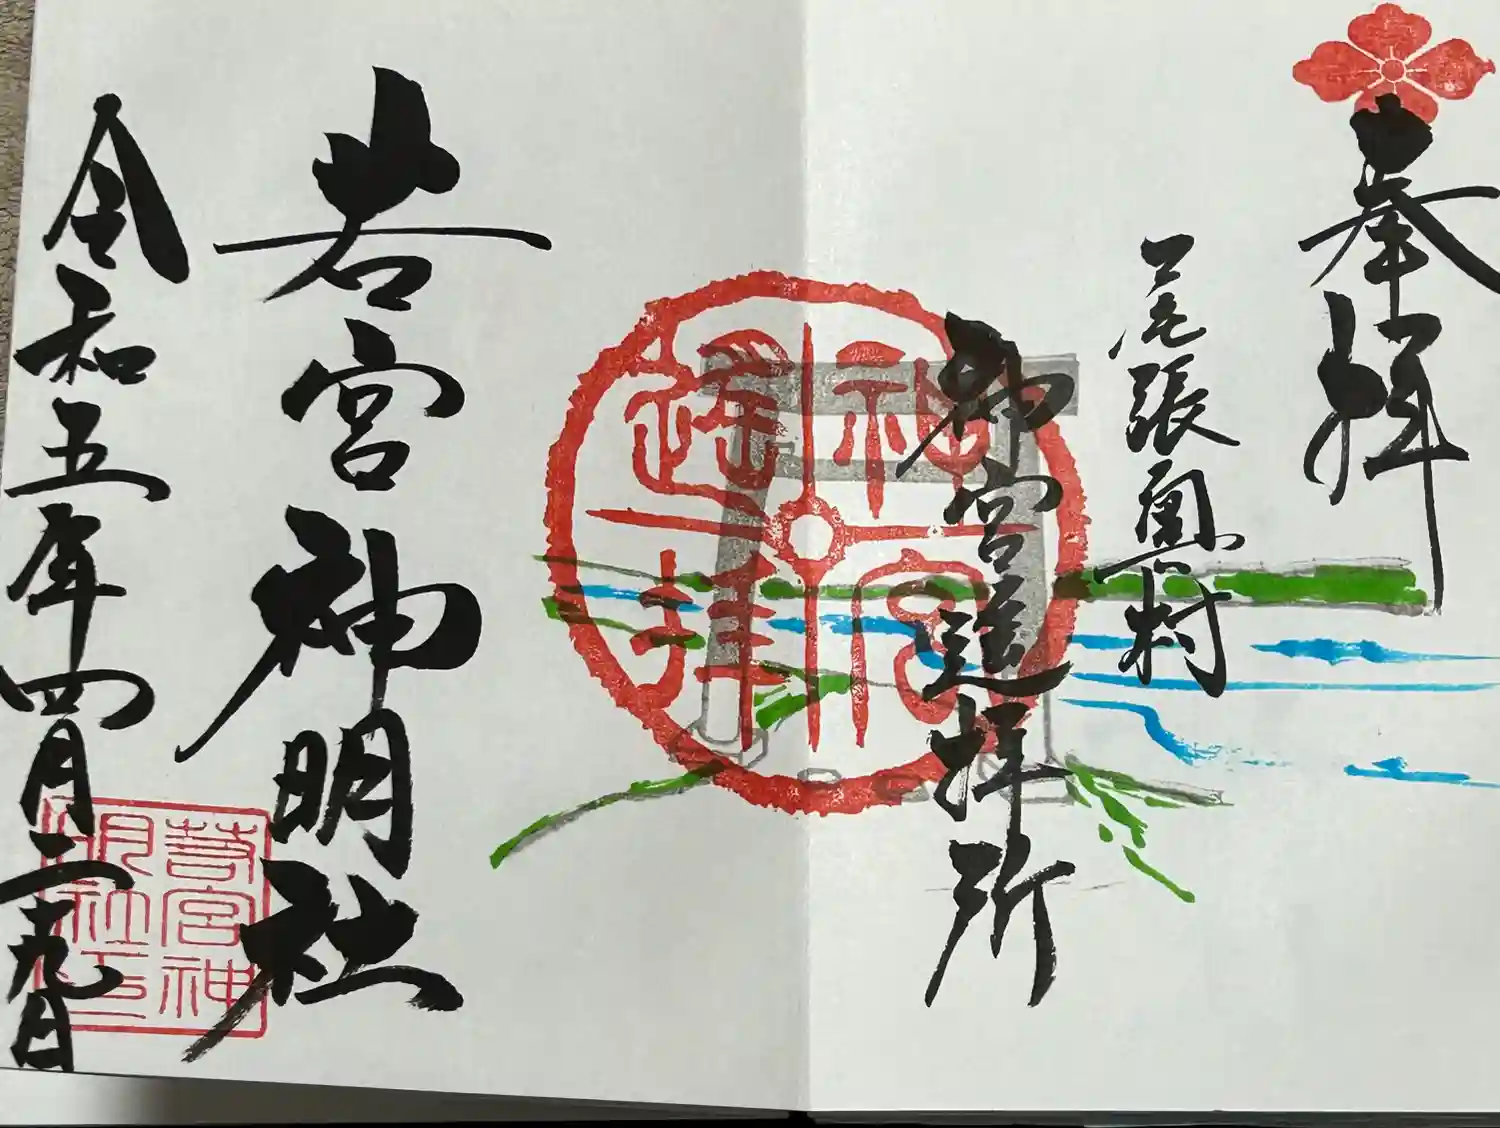 奉拝
尾張奥村
神宮遥拝所
神宮
遥拝
若宮神明社
令和五年四月二十九日
若宮神
明社印